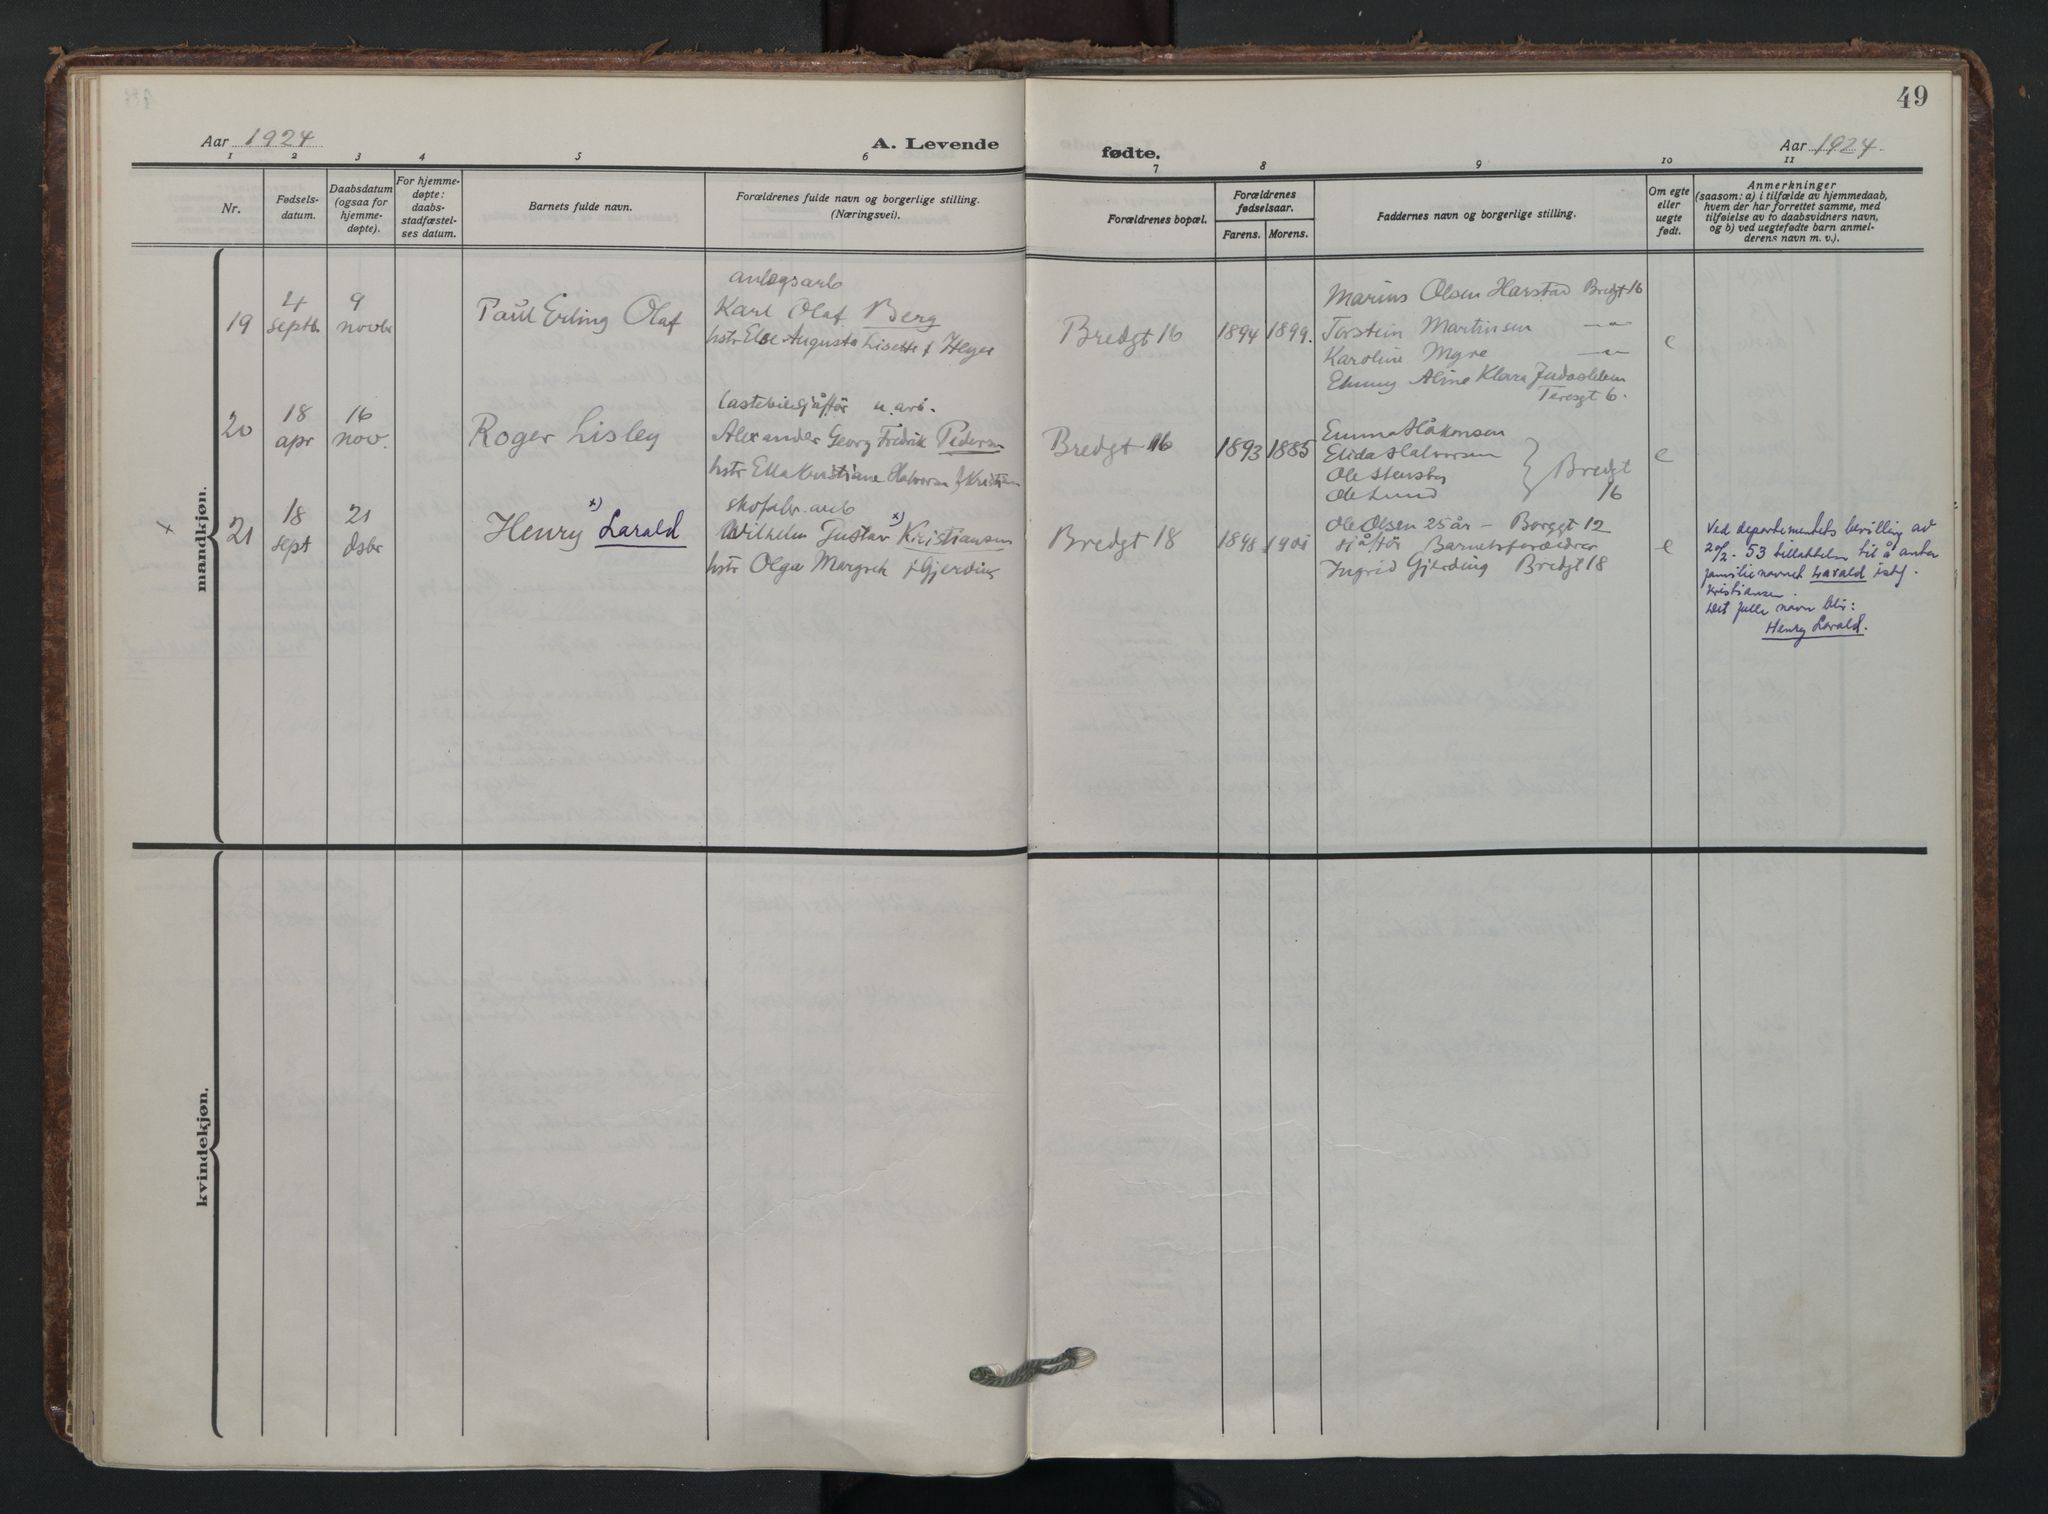 49
Aar 1924
A. Levende
fødte.
Aar 1924.
1 2 3 4 5 6 7 8 9 10 11
Nr.
Fødsels-
datum.
Daabsdatum
(ogsaa for
hjemme-
døpte).
For hjemme-
døpte:
daabs-
stadfæstel-
ses datum.
Barnets fulde navn.
Forældrenes fulde navn og borgerlige stilling.
(Næringsvei).
Forældrenes bopæl.
Forældrenes
fødselsaar.
Farens. Morens.
Faddernes navn og borgerlige stilling.
Om egte
eller
uegte
født.
Anmerkninger
(saasom: a) i tilfælde av hjemmedaab,
hvem der har forrettet samme, med
tilføielse av to daabsvidners navn,
og b) ved uegtefødte barn anmel-
derens navn m. v.).
mandkjøn.
19
4
septb.
9
novbr
Paul Erling Olaf
anlegsarb
Karl Olaf Berg
hstr Else Augusta Lisette f Heyer
Bredgt 16
1894 1899.
Marius Olsen Harstad Bredgt 16
Torstein Martinsen —"—
Karoline Myre —"—
Emmy Aline Klara
Teresgt 6.
e
20
18
apr
16
nov.
Roger Lisley
Lastebilsjåfför u. arb.
Alexander Georg Fredrik Pedersen
hstr Ella Kristiane Halvorsen f Kristian
Bredgt 16
1893 1885
Emma Håkonsen
Elida Halvorsen
Ole Stensby
Ole Lund
Bredgt
16
e
x
21
18
sept
21
dsbr
Henry x) Larald
skofabr. arb
Wilhelm Gustav x) Kristiansen
hstr Olga Margrek f Gjerding
Bredgt 18
1898 1901
Ole Olsen 25 år – Borggt 12
sjåffør Barnetsforældrer
Ingrid Gjerding Bredgt 18
e
Ved departementets bevilling av
20/2-53 tillatelse til å anta
familienavnet Larald istf.
Kristiansen.
Det fulle navn blir:
Henry Larald.
kvindekjøn.